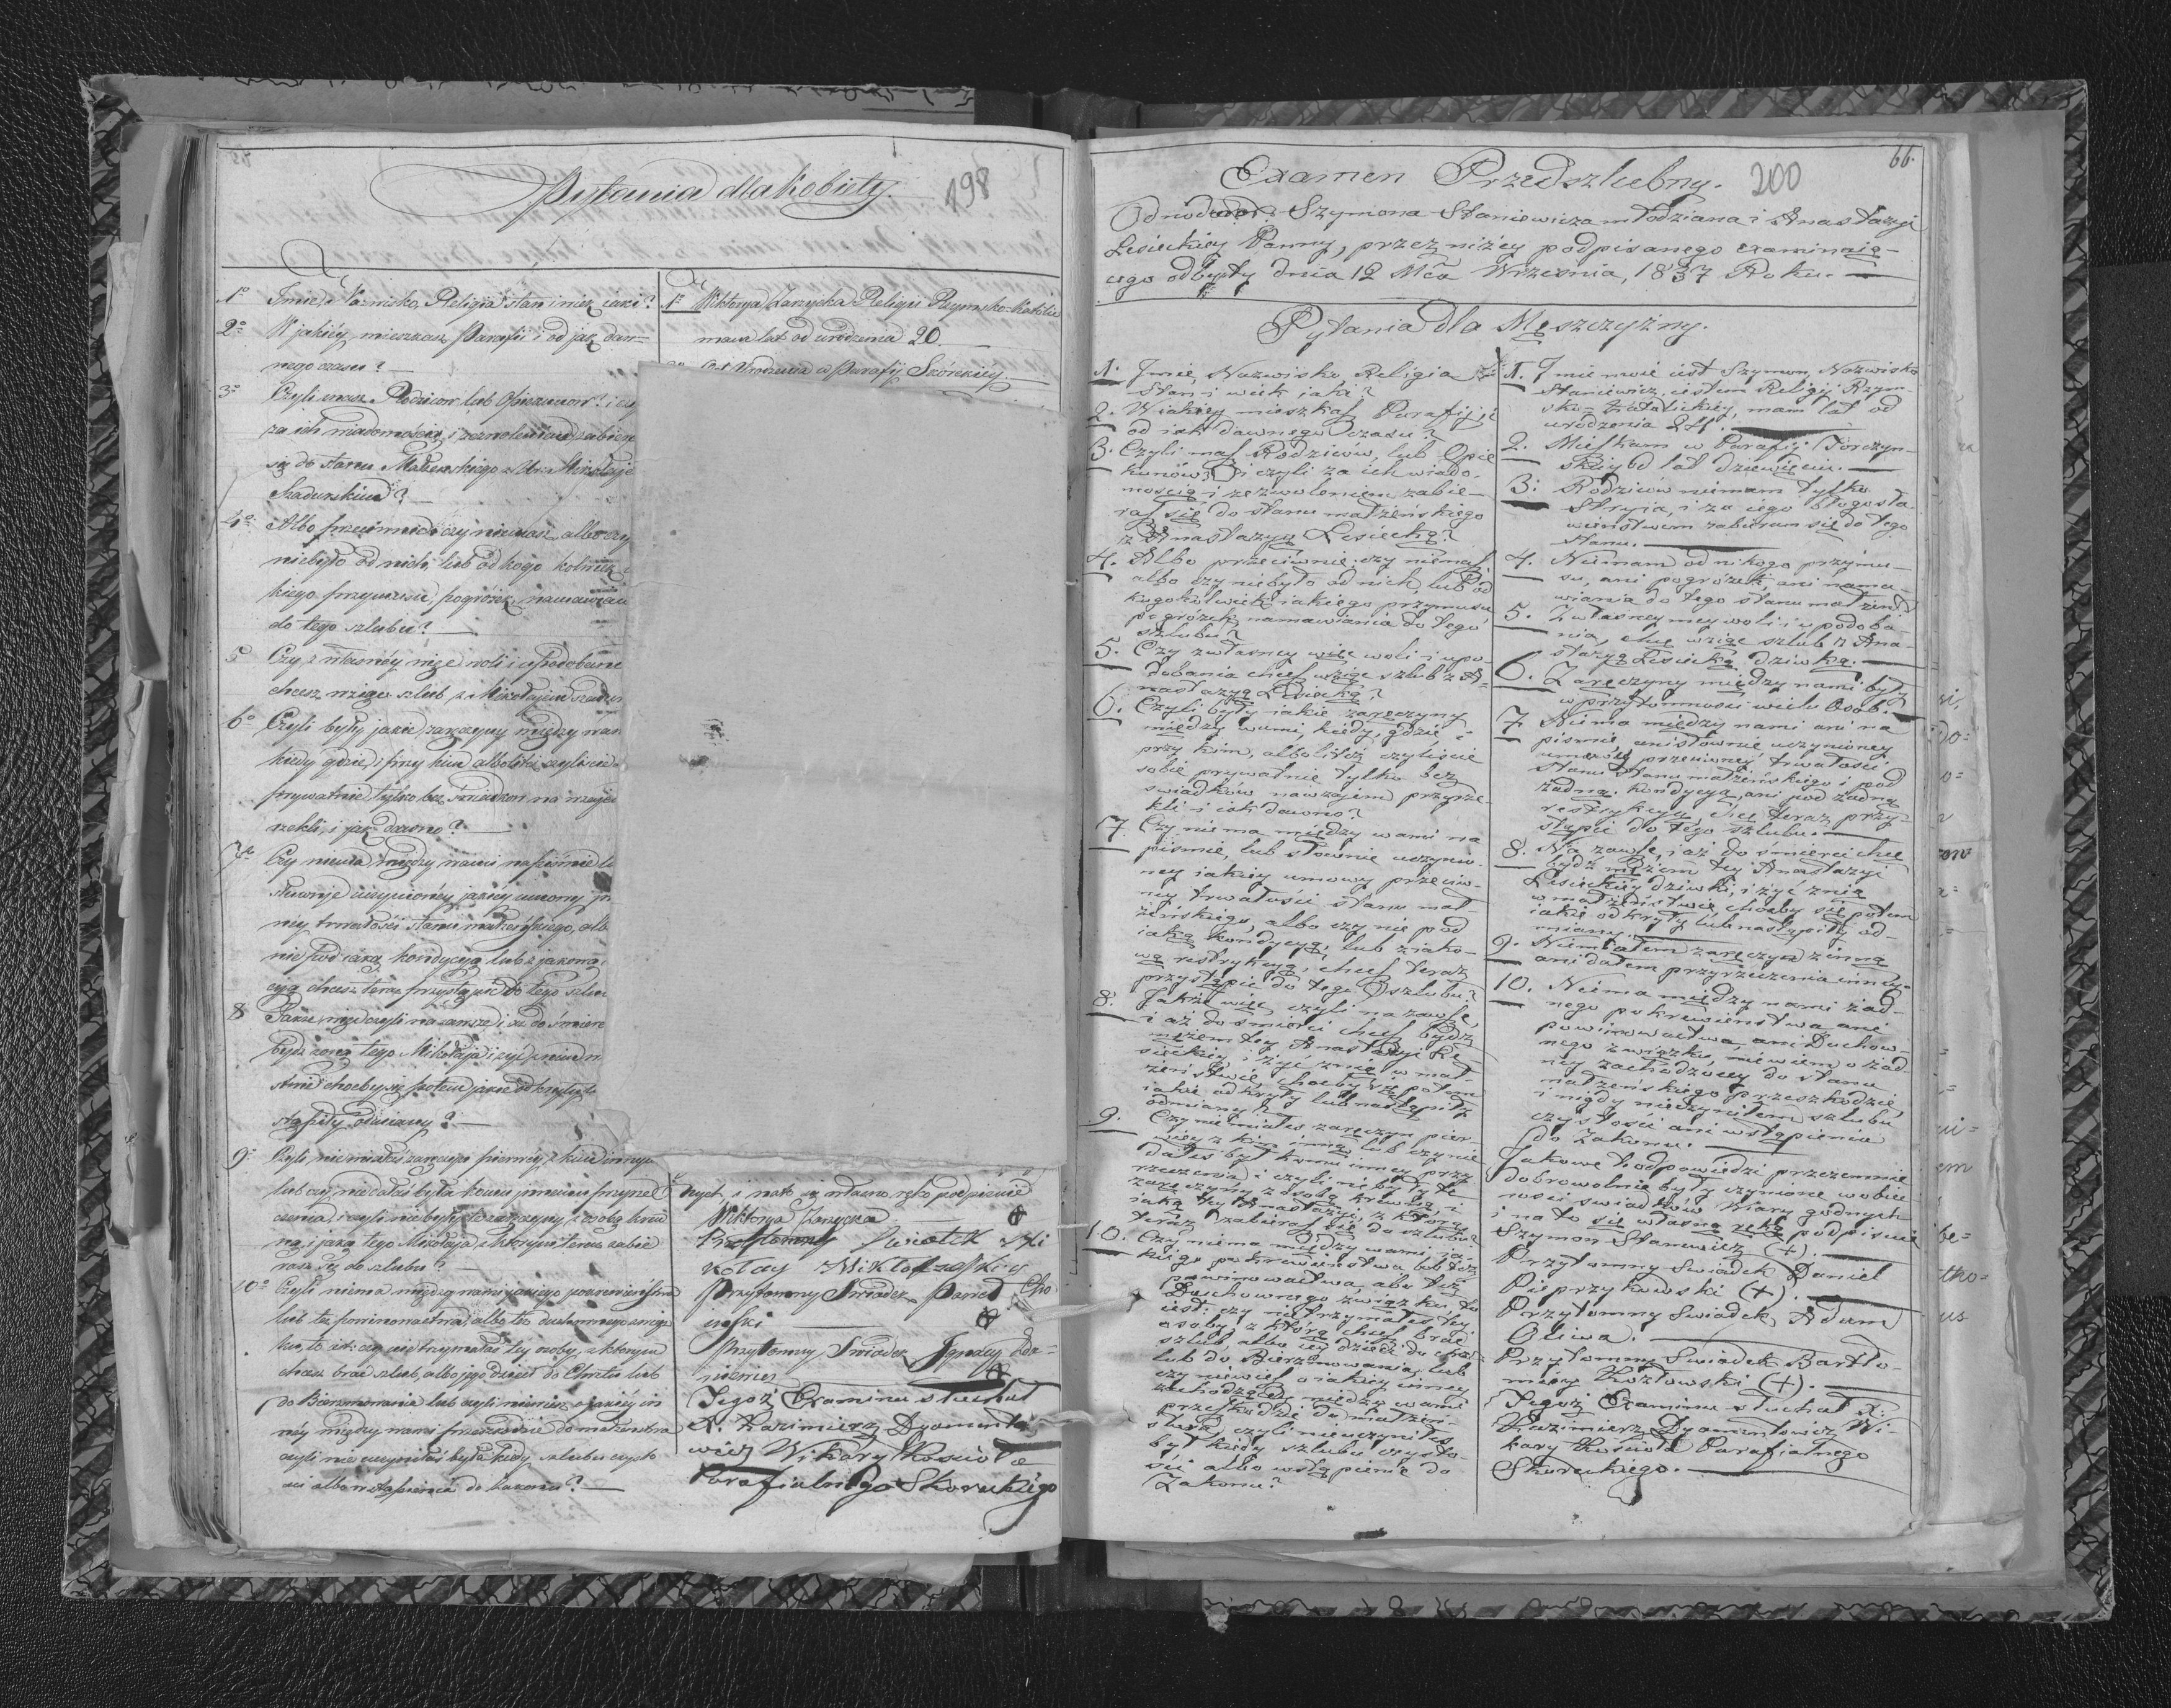 Pytania dla Kobiety.
198
1º Imie, Nazwisko, Religia stan i wiek iaki?
2º W jakiéy mieszkasz Parafii i od jak daw-
nego czasu?
3º Czyli masz Rodziców lub Opiekunów? i czy
za ich wiadomością i zezwoleniem zabiera
się do stanu Małżeńskiego z Mikołaje
Szadurskim?
4º Albo przeciwnie czy niemasz albo czy
niebyło od nich lub od kogo kolwiek
kiego przymusu, pogróżek, namawian
do tego szlubu?
5 Czy z własnéy więc woli i upodobania
chcesz wziąć szlub z Mikołajem
6º Czyli były jakie zaręczyny między wam
kiedy gdzie i przy kim albo też czyliście
prywatnie tylko bez świadków na wzajem
rzekli, i jak dawno?
7º Czy niema między wami na piśmie lu
słownie uczynionéy jakiéy umowy
néy trwałości stanu małżeńskiego, alb
nie pod iaką kondycyą lub z jakową
cyą chcesz teraz przystąpić do tego szlu
8 Jakże więc czyli na zawsze i aż do śmierc
bydź żoną tego Mikołaja i żyć z nim
choćby się potem jakie odkryły
stąpiły odmiany?
9º Czyli nie miałaś zaręczyn pierwéy z kim innym
lub czy nie dałaś była komu innemu przyrze
czenia i czyli nie były te zaręczyny z osobą krew
ną, i jaką tego Mikołaja z którym teraz zabie
rasz się do szlubu?
10º Czyli niema między wami jakiego pokrewieństwa
lub też powinowactwa, albo też duchownego związ
ku, to iest: czy nie trzymałaś tey osoby, z którym
chcesz brać szlub, albo jego dzieci do Chrztu lub
do Bierzmowania lub czyli niewiesz o jakiéy in
néy między wami przeszkodzie do małżeństwa
czyli nie uczyniłaś była kiedy szlubu czysto
ści albo wstąpienia do Zakonu?
1º Wiktorya Zarzycka Religii Rzymsko-Katolic
mam lat od urodzenia 20.
Od Urodzenia w Parafii Skóreckiey
dnych i na to się własną ręką podpisuie
Wiktorya Zarzycka
Przytomny Swiadek
Przytomny Swiadek Paweł Cho
iński
Przytomny Swiadek Ignacy
Tegoż Examinu słuchał
X. Kazimierz Dyamento
wicz Wikary Kościoła
Parafialnego Skoreckiego
66.
Examen Przedszlubny. 200
Od młodziana Szymona Staniewicza młodziana i Anastazyi
Lesieckiey Panny, przez niżey podpisanego examinuią-
cego odbyty dnia 12 Mca Września, 1837 Roku.
Pytania dla Męszczyzny.
1. Imie, Nazwisko, Religia
Stan i wiek iaki?
2. W iakiey mieszkasz Parafii, i
od iak dawnego czasu?
3. Czyli masz Rodziców, lub Opie
kunów? i czyli za ich wiado
mością i zezwoleniem zabie-
rasz się do stanu małżeńskiego
z Anastazyą Lesiecką?
4. Albo przeciwnie, czy niemasz
albo czy niebyło od nich, lub od
kogokolwiek iakiego przymusu
pogróżek, namawiania do tego
szlubu?
5. Czy z własney więc woli i upo-
dobania chcesz wziąć szlub z A-
nastazyą Lesiecką?
6. Czyli były iakie zaręczyny
między wami, kiedy, gdzie i
przy kim, albo li też czyliście
sobie prywatnie tylko bez
swiadków nawzajem przyrze-
kli i iak dawno?
7. Czy niema między wami na
piśmie, lub słownie uczynio-
ney iakiey umowy przeciw-
ney trwałości stanu mał-
żeńskiego, albo czy nie pod
iaką kondycyą, lub z iako-
wą restrykcyą, chcesz teraz
przystąpić do tego szlubu?
8. Jakże więc, czyli na zawsze,
i aż do śmierci chcesz bydź
mężem tey Anastazyi Le-
sieckiey i żyć z nią w mał-
żeństwie, choćby się potem
iakie odkryły lub nastąpiły
odmiany?
9. Czy nie miałeś zaręczyn pier-
wiey z kim inną lub czy nie
dałeś był komu inney przy
rzeczenia, i czyli nie były te
zaręczyny z osobą krewną i
iaką tey Anastazyi, z którą
teraz zabierasz się do szlubu?
10. Czy niema między wami ia-
kiego pokrewieństwa lub też
powinowactwa, albo też
Duchownego związku, to
iest: czy nie trzymałeś tey
osoby, z którą chcesz brać
szlub, albo iey dzieci do chrztu
lub do Bierzmowania, lub
czy niewiesz o iakiey inney
zachodzącey między wami
przeszkodzie do małżeń-
stwa, czyli nieuczyniłeś
był kiedy szlubu czysto-
ści albo wstąpienia do
Zakonu?
1. Imie moie iest Szymon, Nazwisko
Staniewicz, iestem Religii Rzym-
sko-Katolickiey, mam lat od
urodzenia
2. Mieszkam w Parafii
skiey od lat dziewięciu.
3. Rodziców niemam tylko
Stryia, i za iego błogosła-
wieństwem zabieram się do tego
stanu.
4. Niemam od nikogo przymu-
su, ani pogróżek, ani nama-
wiania do tego stanu małżeńs
5. Z własney mey woli i upodoba-
nia, chcę wziąć szlub z Ana-
stazyą Lesiecką dziewką.
6. Zaręczyny między nami były
w przytomności wielu Osób.
7 Niema między nami ani na
piśmie ani słownie uczynioney
umowy przeciwney trwałości
stanu małżeńskiego i pod
żadną kondycyą, ani pod żadną
restrykcyą, chcę teraz przy-
stąpić do tego szlubu.
8. Na zawsze, i aż do śmierci chcę
bydź mężem tey Anastazyi
Lesieckiey dziewki, i żyć z nią
w małżeństwie choćby się potem
iakie odkryły lub nastąpiły od-
miany.
9. Niemiałem zaręczyn z inną
ani dałem przyrzeczenia inney.
10. Niema między nami żad-
nego pokrewieństwa, ani
powinowactwa, ani Duchow-
nego związku, niewiem o żad-
ney zachodzącey do stanu
małżeńskiego przeszkodzie,
i nigdy nieczyniłem szlubu
czystości ani wstąpienia
do Zakonu.
Jakowe t: odpowiedzi przezemnie
dobrowolnie były czynione w obec
ności swiadków Wiary godnych
i na to się własną ręką podpisuie
Szymon Staniewicz (+).
Przytomny Swiadek Daniel
Pieprzykowski (+).
Przytomny Swiadek Adam
Oliwa.
Przytomny Swiadek Bartło-
miey Kozłowski (+).
Tegoż Examinu słuchał X:
Kazimierz Dyamentowicz Wi-
kary Kościoła Parafialnego
Skoreckiego.